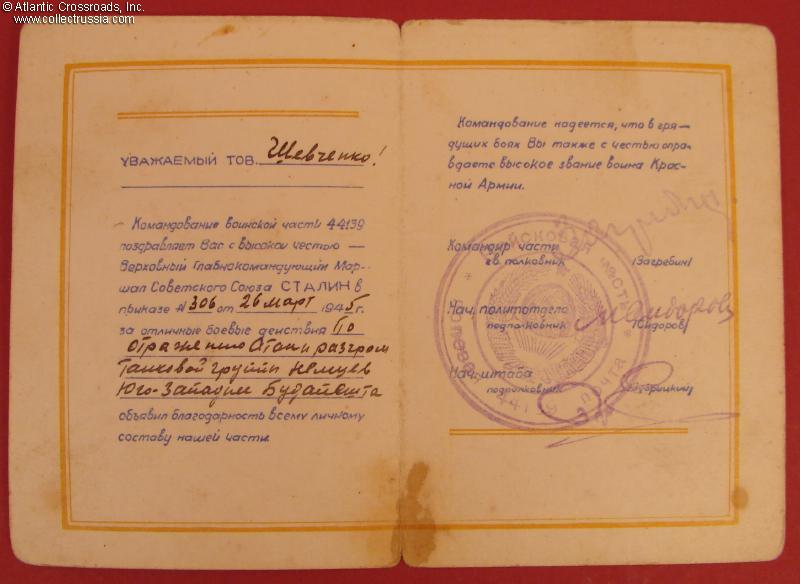 © Atlantic Crossroads, Inc.
www.collectrussia.com
УВАЖАЕМЫЙ ТОВ. Шевченко!
Командование воинской части 44139
поздравляет Вас с высокой честью —
Верховный Главнокомандующий Мар-
шал Советского Союза СТАЛИН в
приказе № 306 от 26 март 1945 г.
за отличные боевые действия По
отражению Атак и разгром
Танковой группы Немцев
Юго-Западн Будапешта
объявил благодарность всему личному
составу нашей части.
Командование надеется, что в гря-
дущих боях Вы также с честью опра-
вдаете высокое звание воина Крас-
ной Армии.
Командир части
гв. полковник (Загребин)
Нач. политотдела
подполковник (Сидоров)
Нач. штаба
подполковник
войсковая часть
полевая почта
44139